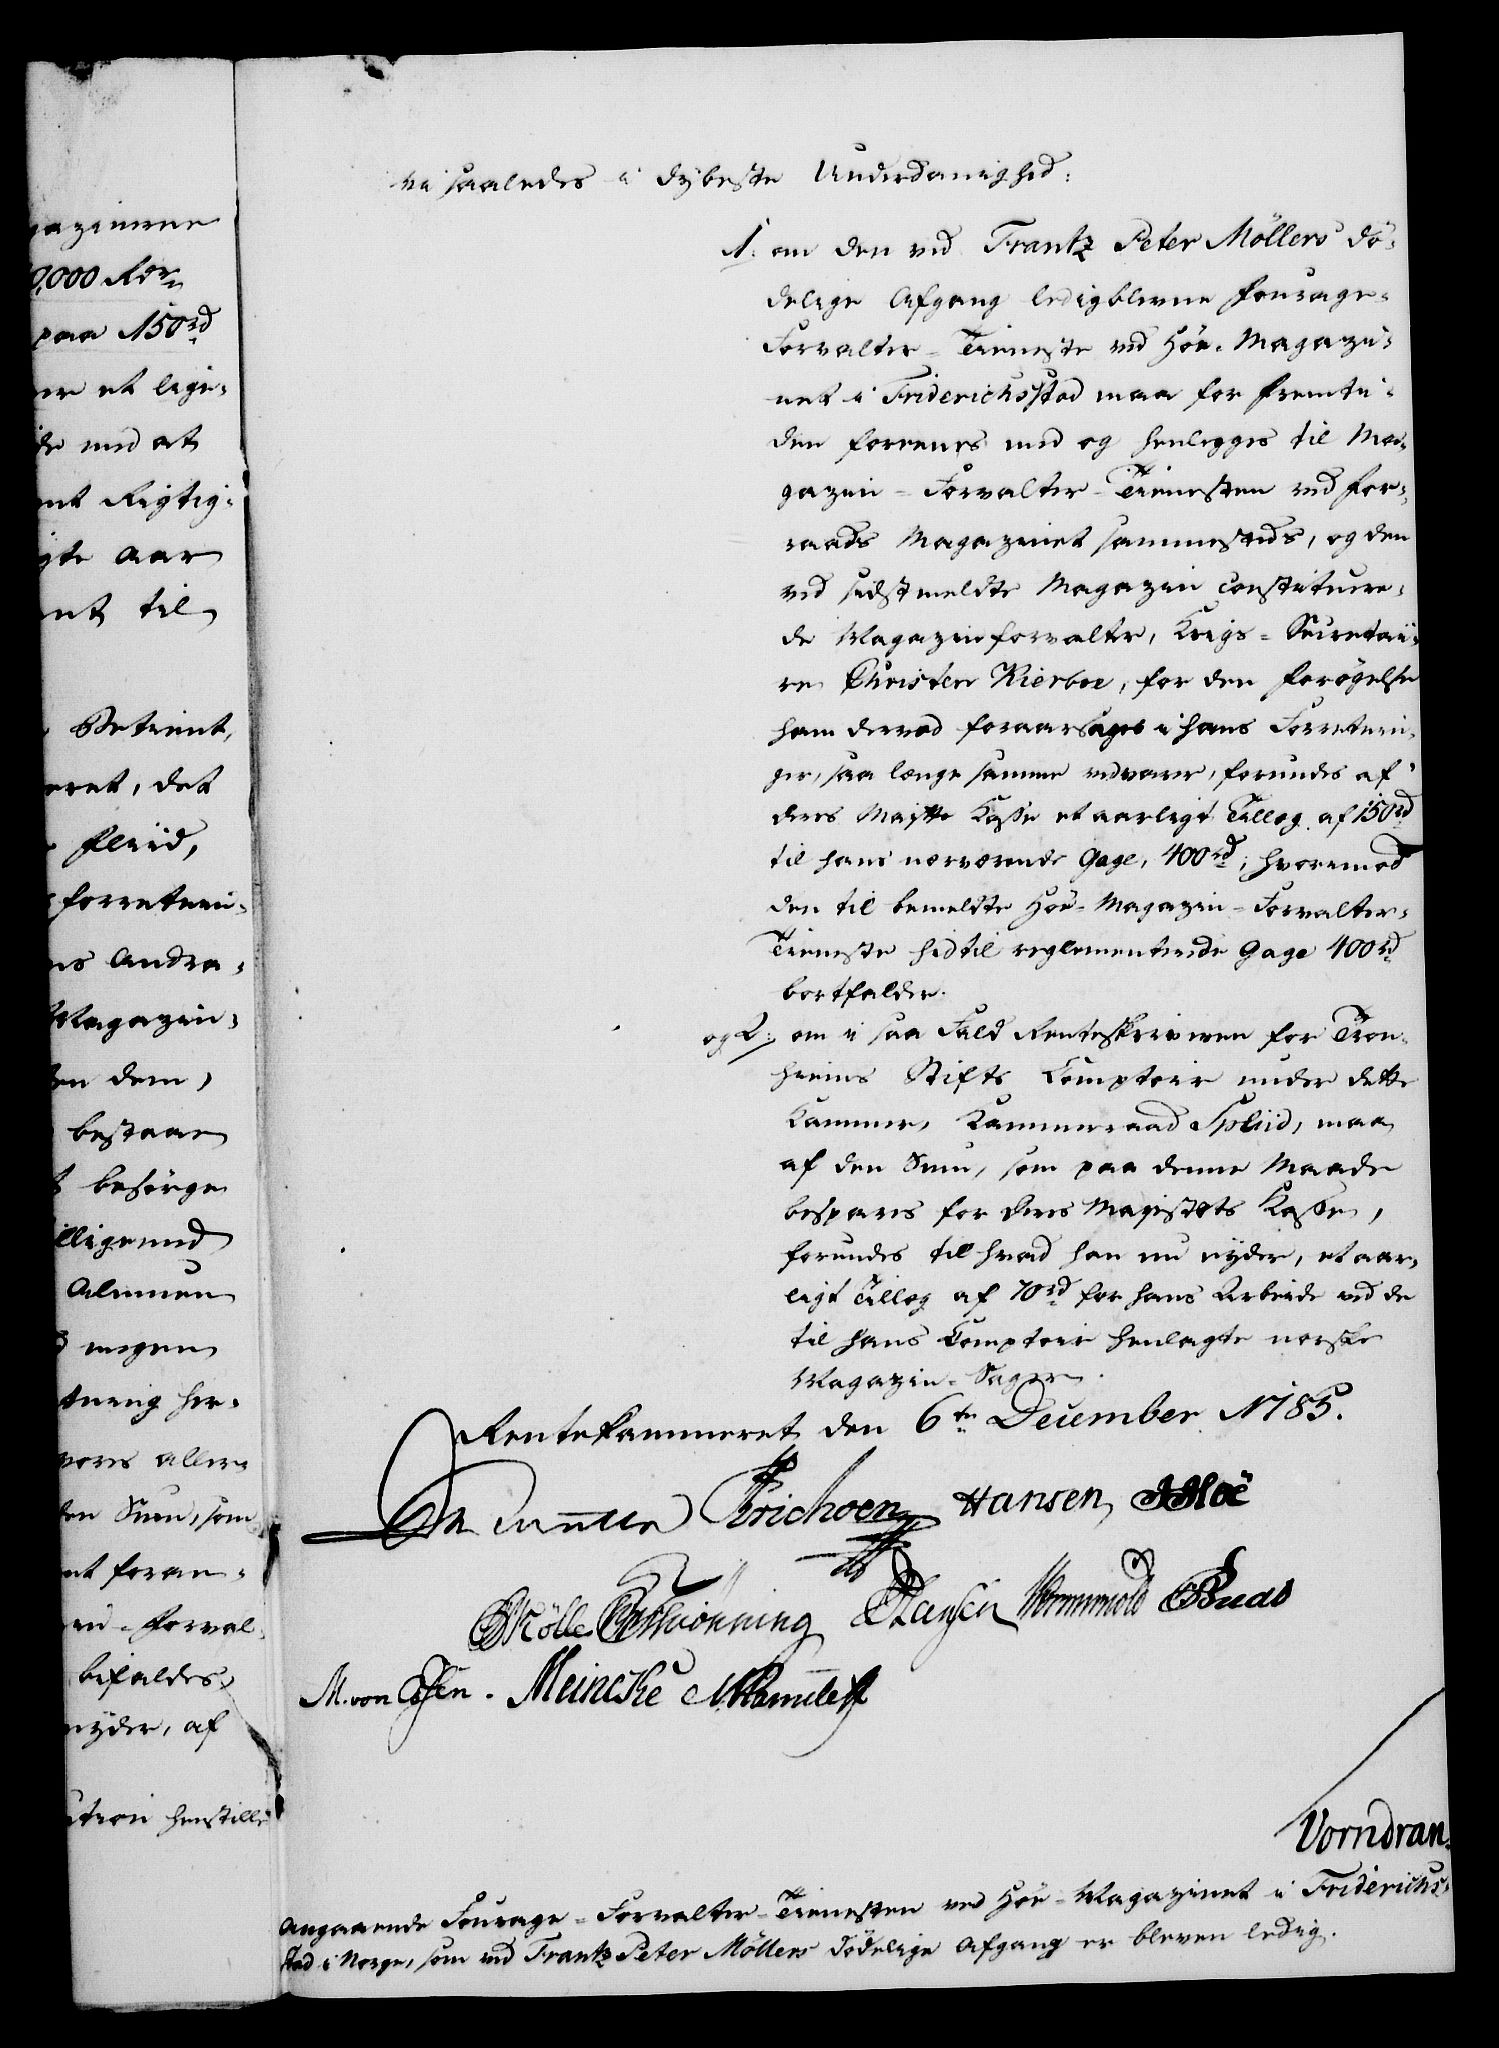 gazinerne
0,000 Rdr
paa 150rd
et lige-
med at
Rigtig-
gte Aar
til
Betient,
eret, det
Fliid,
Forretnin-
Andra-
Magazin-
dem,
bestaae
besørge
Alminen
megen
tning her-
allern
den Sum, som
foran-
Forval-
bifaldes,
nyder, af
ution henstille
vi saaledes i dybeste Underdanighed:
1. om den ved Frantz Peter Möllers dö-
delige Afgang ledigblevne Fourage-
Forvalter-Tieneste ved Höe-Magazi-
net i Friderichsstad maa for Fremti-
den foreenes med og henlegges til Ma-
gazin-Forvalter-Tienesten ved For-
raads Magazinet sammesteds, og den
ved sidstmeldte Magazin constituere-
de Magazinforvalter, Krigs-Secretai-
re Christen Kierboe, for den Forögelse
ham derved foraarsages i hans Forretnin-
ger, saa længe samme vedvarer, forundes af
deres Maists Kasse et aarligt Tillæg af 150rd
til hans nærværende Gage, 400rd; hvorimod
den til bemeldte Höe-Magazin-Forvalter-
Tieneste hidtil reglementerede Gage 400rd
bortfalder.
og 2. om i saa Fald Renteskriveren for Tron-
hiems Stifts Comptoir under dette
Kammer, Kammerraad Spliid, maa
af den Sum, som paa denne Maade
bespares for deres Majestæts Kasse,
forundes til hvad han nu nyder, et aar-
ligt Tillæg af 70rd for hans Arbeide ved de
til hans Comptoir henlagte norske
Magazin-Sager.
Rentekammeret den 6te December 1785.
Erichsen Hansen
Mölle Hansen Wormwold
M. von Essen. Meincke
Vorndran.
Angaaende Fourage-Forvalter-Tienesten ved Höe-Magazinet i Friderichs-
stad i Norge, som ved Frantz Peter Möllers dödelige Afgang er bleven ledig.